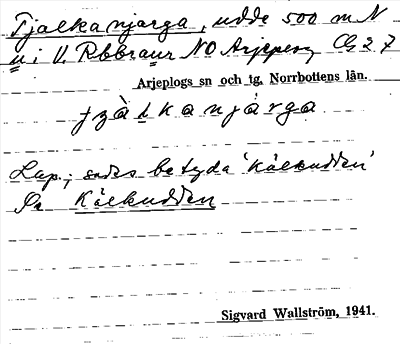 Tjalkanjarga, udde 500 m N
u i V. Rebbraur NO Arjepen, Cg 2 7
Arjeplogs sn och tg, Norrbottens län.
tjàlkanjárga
Lap.; sades betyda 'Kälkudden'
Se Kälkudden
Sigvard Wallström, 1941.